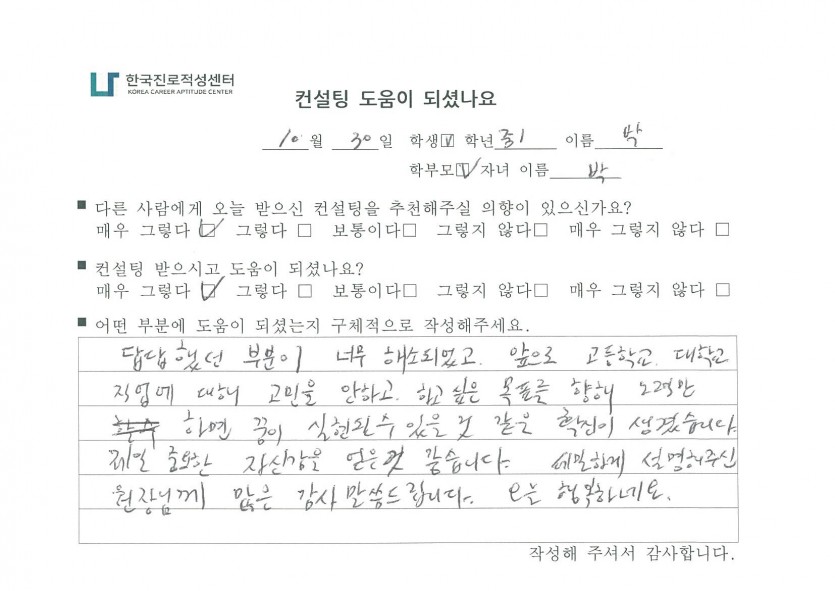 한국진로적성센터
KOREA CAREER APTITUDE CENTER
컨설팅 도움이 되셨나요
10월 30일 학생☑ 학년 중1 이름 박
학부모☑ 자녀 이름 박
■ 다른 사람에게 오늘 받으신 컨설팅을 추천해주실 의향이 있으신가요?
매우 그렇다 ☑ 그렇다 □ 보통이다□ 그렇지 않다□ 매우 그렇지 않다 □
■ 컨설팅 받으시고 도움이 되셨나요?
매우 그렇다 ☑ 그렇다 □ 보통이다□ 그렇지 않다□ 매우 그렇지 않다 □
■ 어떤 부분에 도움이 되셨는지 구체적으로 작성해주세요.
답답했던 부분이 너무 해소되었고. 앞으로 고등학교. 대학교
직업에 대해 고민을 안하고. 하고 싶은 목표를 향해 노력만
하면 꿈이 실현될수 있을 것 같은 확신이 생겼습니다.
제일 중요한 자신감을 얻은것 같습니다. 세밀하게 설명해주신
원장님께 많은 감사 말씀드립니다. 오늘 행복하네요.
작성해 주셔서 감사합니다.